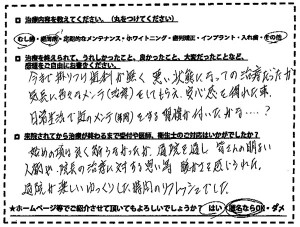 □ 治療内容を教えてください。（丸をつけてください）
むし歯・歯周病・定期的なメンテナンス・ホワイトニング・歯列矯正・インプラント・入れ歯・その他
□ 治療を終えられて、うれしかったこと、良かったこと、大変だったことなど、
感想をご自由にお書きください。
今まで掛かりつけ歯科が無く 悪い状態になっての治療だったが
気長に歯をのメンテ(治療)をしてもらえ、安心感を得れた事、
日常生活で歯のメンテ(歯間)をする習慣が付いたかな…?
□ 来院されてから治療が終わるまで受付や医師、衛生士のご対応はいかがでしたか？
始めの頃は良く解らなかったが、通院を通し 皆さんの明るい
人間や、院長の治療に対する思い等 暖かさを感じられた。
通院が楽しいゆっくりした時間のリフレッシュでした。
★ホームページ等でご紹介させて頂いてもよろしいでしょうか？ はい 匿名ならOK・ダメ